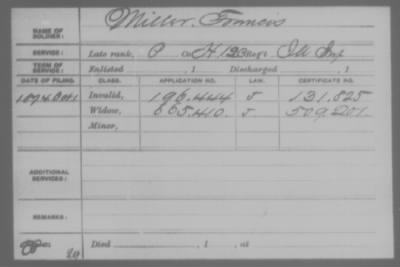 NAME OF SOLDIER: Miller, Francis
SERVICE: Late rank, P Co. H, 123 Reg't Ill Inf
TERM OF SERVICE: Enlisted , 1 Discharged , 1
DATE OF FILING. CLASS. APPLICATION NO. LAW. CERTIFICATE NO.
1874 Invalid, 196.444 J 131.825
Widow, 665.410. J 509.201.
Minor,
ADDITIONAL SERVICES:
REMARKS:
20 Died , 1 , at